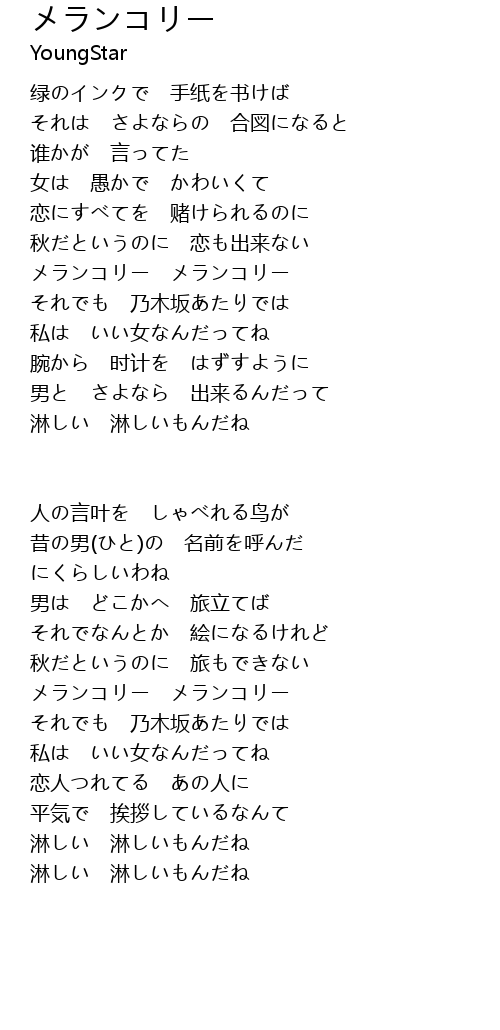 メランコリー
YoungStar
绿のインクで　手纸を书けば
それは　さよならの　合図になると
誰かが　言ってた
女は　愚かで　かわいくて
恋にすべてを　赌けられるのに
秋だというのに　恋も出来ない
メランコリー　メランコリー
それでも　乃木坂あたりでは
私は　いい女なんだってね
腕から　时计を　はずすように
男と　さよなら　出来るんだって
淋しい　淋しいもんだね
人の言叶を　しゃべれる鸟が
昔の男(ひと)の　名前を呼んだ
にくらしいわね
男は　どこかへ　旅立てば
それでなんとか　絵になるけれど
秋だというのに　旅もできない
メランコリー　メランコリー
それでも　乃木坂あたりでは
私は　いい女なんだってね
恋人つれてる　あの人に
平気で　挨拶しているなんて
淋しい　淋しいもんだね
淋しい　淋しいもんだね